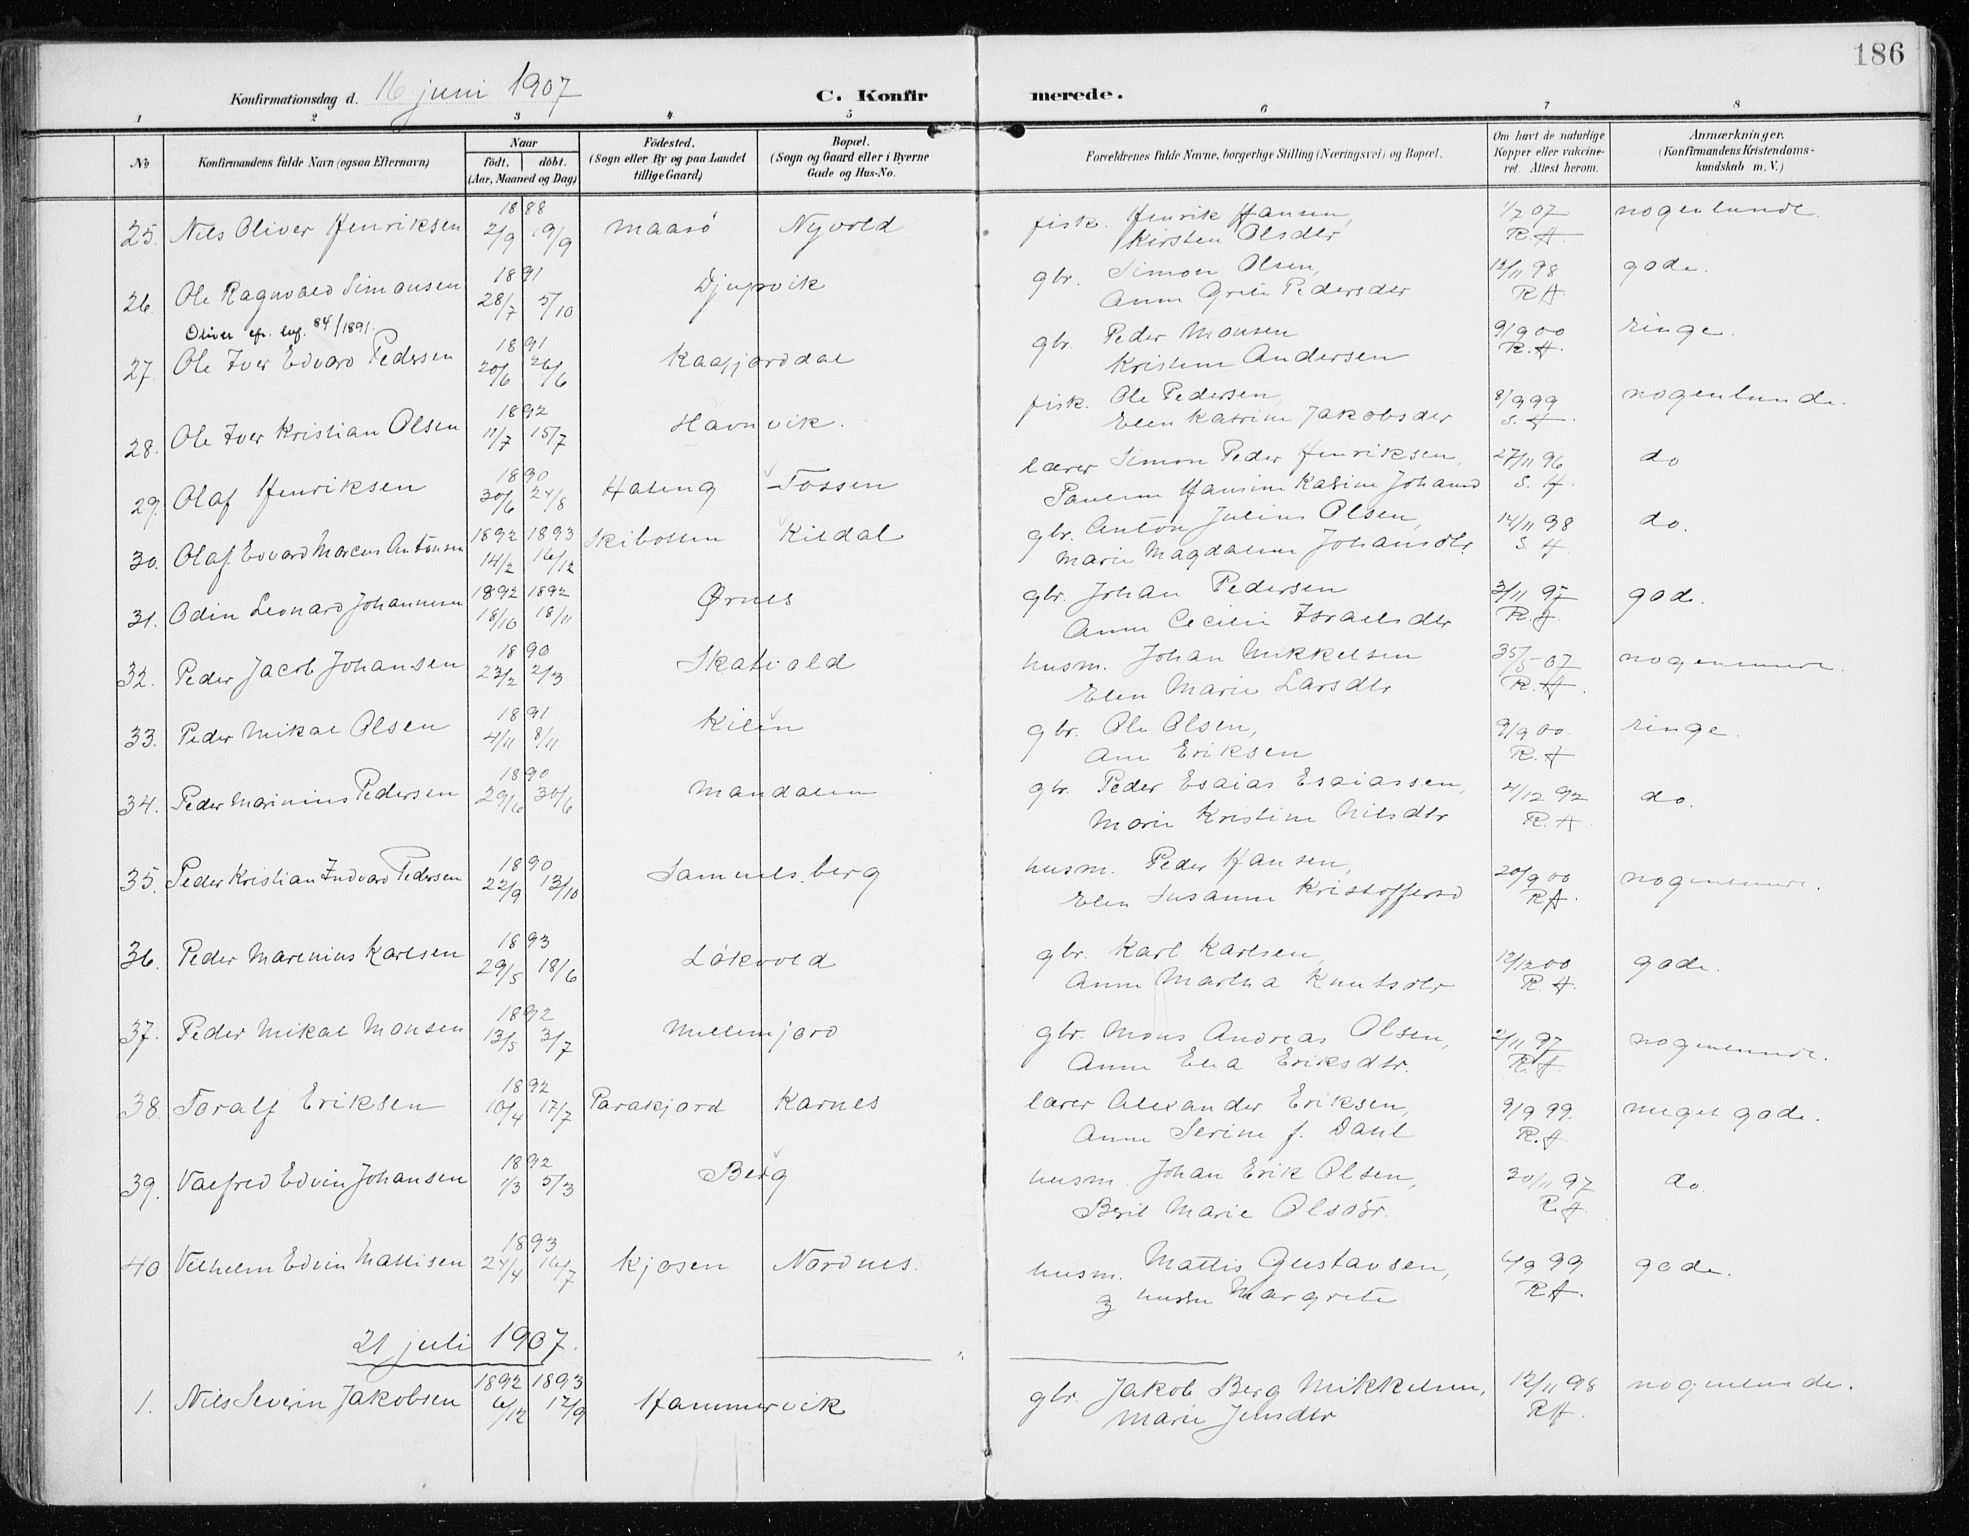 186
Konfirmationsdag d. 16 juni 1907 C. Konfirmerede.
1 2 3 4 5 6 7 8
No Konfirmandens fulde Navn (ogsaa Efternavn) Naar født. døbt. (Aar, Maaned og Dag) Fødested. (Sogn eller By og paa Landet tillige Gaard) Bopæl. (Sogn og Gaard eller i Byerne Gade og Hus-No. Forældrenes fulde Navne, borgerlige Stilling (Næringsvei) og Bopæl. Om havt de naturlige Kopper eller vakcineret. Attest herom. Anmærkninger, (Konfirmandens Kristendomskundskab m. V.)
25. Nils Oliver Henriksen 1888 2/9 19/9 Maasö Nyvold fisk. Henrik Hansen, Kirsten Olsdtr 1/7 07 R.H. nogenlunde.
26. Ole Ragnvald Simonsen 1891 28/7 5/10 Djupvik gbr. Simon Olsen, Anne Grete Pedersdtr 12/11 98 R.H. gode.
Oliver efr. lnf. 84/1891.
27. Ole Iver Edvard Pedersen 1891 20/6 26/6 Kaafjorddal gbr. Peder Monsen Kristine Andersen 9/9 00 R.H. ringe.
28. Ole Iver Kristian Olsen 1892 11/7 15/7 Havnvik. fisk. Ole Pedersen, Elen Katrine Jakobsdtr 8/9 99 S.H. nogenlunde.
29. Olaf Henriksen 1890 30/6 24/8 Tossen lærer Simon Peder Henriksen, Hansine Katrine 27/11 96 S.H. do
30. Olaf Edvard Marcus Antonsen 1892 1893 14/2 16/12 Skibotten Kildal gbr. Anton Julius Olsen, Marie Magdalene Johansdtr 14/11 98 S.H. do.
31. Odin Leonard Johannesen 1892 1892 18/10 18/11 Ørnes gbr. Johan Pedersen Anne Cecilie Israelsdtr 3/11 97 R.H. gode.
32. Peder Jacob Johansen 1890 23/2 2/3 Skatvold husm. Johan Mikkelsen Elen Marie Larsdtr 07 R.H. nogenlunde.
33. Peder Mikal Olsen 1891 4/11 8/11 Kilen gbr. Ole Olsen, Ane Eriksen 9/9 00. R.H. ringe.
34. Peder Marinius Pedersen 1890 29/6 30/6 Mandalen gbr. Peder Esaias Esaiassen, Marie Kristine Nilsdtr 4/12 92 R.H. do.
35. Peder Kristian Indvard Pedersen 1890 22/9 13/10 Samuelsberg husm. Peder Hansen, Elen Susanne Kristoffersd 20/9 00 R.H. nogenlunde.
36. Peder Marenius Karlsen 1893 29/5 18/6 Løkvold gbr. Karl Karlsen, Anne Martha Knutsdtr 12/12 00 R.H. gode.
37. Peder Mikal Monsen 1892 13/5 3/7 Millemfjord gbr. Mons Andreas Olsen, Anne Elia Eriksdtr. 2/11 97 R.H. nogenlunde.
38. Toralf Eriksen 1892 10/4 17/7 Karnes lærer Alexander Eriksen, Anne Serine f. Dahl 9/9 99. R.H. meget gode.
39. Valfred Edvin Johansen 1892 1/3 5/3 Berg husm. Johan Erik Olsen, Berit Marie Olsdtr. 30/11 97 R.H. do.
40 Vilhelm Edvin Mattisen 1893 24/4 16/7 Kjosen Nordnes. husm. Mattis Gustavsen, og hustru Margrete 6/9 99 R.H. gode.
21 juli 1907.
1. Nils Severin Jakobsen 1892 1893 6/12 17/9 Hammervik gbr. Jakob Berg Mikkelsen, Marie Jensdtr 12/11 98 R.H. nogenlunde.